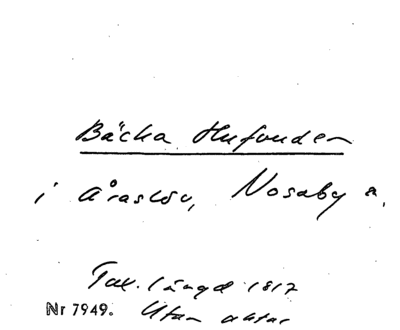 Bäcka Hufonden
i Åraslöv, Nosaby s.
Tax. längd 1817
Nr 7949. Utan aktar